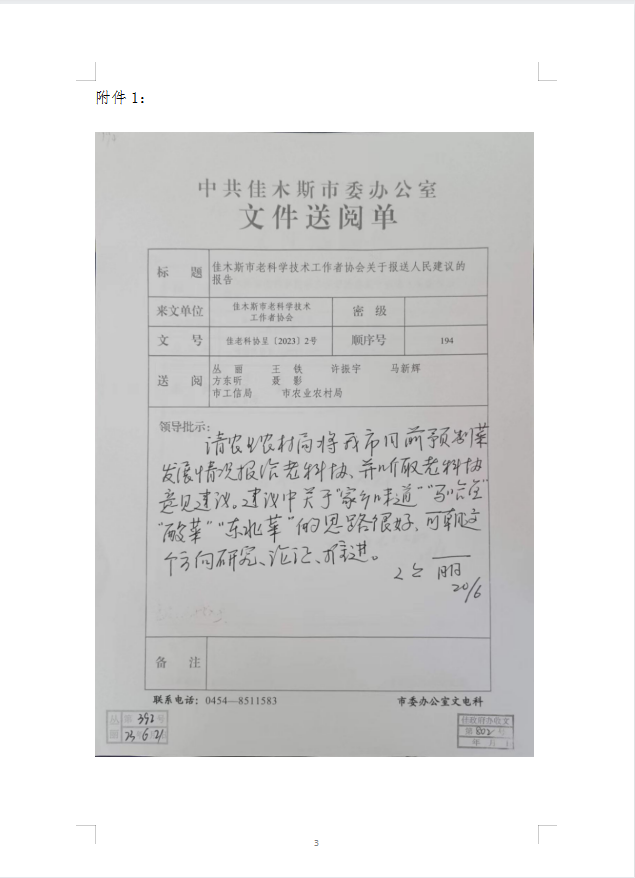 附件 1：
中共佳木斯市委办公室
文件送阅单
标 题 佳木斯市老科学技术工作者协会关于报送人民建议的
报告
来文单位 佳木斯市老科学技术
工作者协会 密 级
文 号 佳老科协呈〔2023〕2号 顺序号 194
送 阅 丛 丽 王 铁 许振宇 马新辉
方东昕 聂 影
市工信局 市农业农村局
领导批示：
请农业农村局将我市目前预制菜
发展情况报给老科协，并听取老科协
意见建议。建议中关于“家乡味道”
“酸菜”“东北菜”的思路很好，可朝这
个方向研究、论证、推进。
丛丽
20/6
备 注
联系电话：0454—8511583 市委办公室文电科
丛 第 392 号
丽 23 6 21
市政府办收文
第 802 号
年 月 日
3